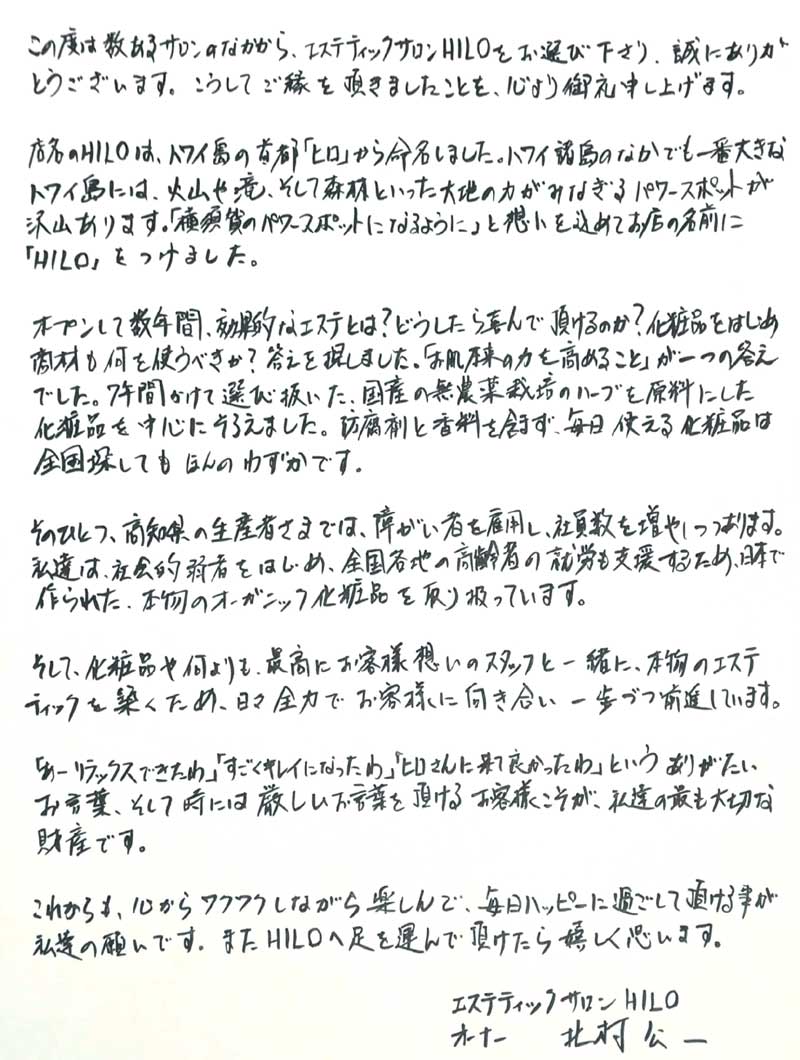 この度は数あるサロンのなかから、エステティックサロンHILOをお選び下さり、誠にありが
とうございます。こうしてご縁を頂きましたことを、心より御礼申し上げます。
店名のHILOは、ハワイ島の首都「ヒロ」から命名しました。ハワイ諸島のなかでも一番大きな
ハワイ島には、火山や滝、そして森林といった大地の力がみなぎるパワースポットが
沢山あります。「横須賀のパワースポットになるように」と想いを込めてお店の名前に
「HILO」をつけました。
オープンして数年間、効果的なエステとは?どうしたら喜んで頂けるのか?化粧品をはじめ
商材も何を使うべきか?答えを探しました。「お肌本来の力を高めること」が一つの答え
でした。7年間かけて選び抜いた、国産の無農薬栽培のハーブを原料にした
化粧品を中心にそろえました。防腐剤と香料を含まず、毎日使える化粧品は
全国探してもほんのわずかです。
そのひとつ、高知県の生産者さまでは、障がい者を雇用し、社員数を増やしつつあります。
私達は、社会的弱者をはじめ、全国各地の高齢者の就労も支援するため、日本で
作られた、本物のオーガニック化粧品を取り扱っています。
そして、化粧品や何よりも、最高にお客様想いのスタッフと一緒に、本物のエステ
ティックを築くため、日々全力でお客様に向き合い一歩づつ前進しています。
「あーリラックスできたわ」「すごくキレイになったわ」「ヒロさんに来て良かったわ」という ありがたい
お言葉、そして時には厳しいお言葉を頂けるお客様こそが、私達の最も大切な
財産です。
これからも、心からワクワクしながら楽しんで、毎日ハッピーに過ごして頂ける事が
私達の願いです。またHILOへ足を運んで頂けたら嬉しく思います。
エステティックサロンHILO
オーナー 北村公一